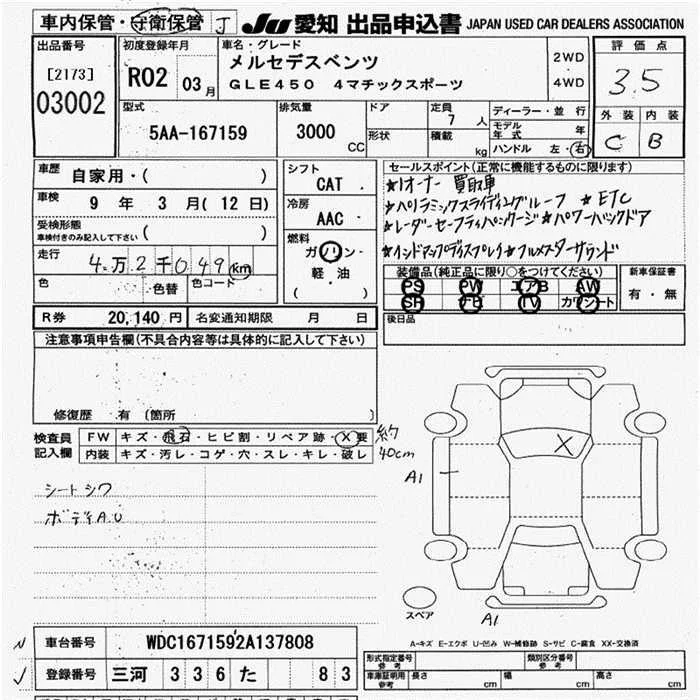 車内保管・守衛保管 J JU 愛知 出品申込書 JAPAN USED CAR DEALERS ASSOCIATION
出品番号 初度登録年月 車名・グレード 評価点
[2173] R02 03月 メルセデスベンツ 2WD
03002 GLE450 4マチックスポーツ 4WD 3.5
型式 排気量 ドア 定員 7人 ディーラー・並行 外装 内装
5AA-167159 3000 CC 形状 積載 kg モデル年式 年 C B
ハンドル 左・右
車歴 自家用・( ) シフト CAT . セールスポイント(正常に機能するものに限ります)
車検 9年 3月(12日) 冷房 AAC . ★1オーナー 買取車
★パノラミックスライディングルーフ ★ETC
受検形態 車検付きのみ記入して下さい ( ) ★レーダーセーフティパッケージ★パワーバックドア
走行 4万2千049km 燃料 ガソリン・軽・油 ( ) ★ヘッドアップディスプレイ★ブルメスターサウンド
色 色替 色コード 装備品(純正品に限り○をつけてください) 新車保証書
PS PW エアB AW 有・無
SR TV カワシート
R券 20,140円 名変通知期限 月 日 後日品
注意事項申告欄(不具合内容等は具体的に記入して下さい)
修復歴 有 〔箇所 〕
検査員記入欄 FW キズ・飛石・ヒビ割・リペア跡・X要 約40cm
内装 キズ・汚レ・コゲ・穴・スレ・キレ・破レ
X
A1
シートシワ
ボディA.U
スペア A1
A-キズ E-エクボ U-凹み W-補修跡 S-サビ C-腐食 XX-交換済
N 車台番号 WDC1671592A137808 形式指定番号 参考 類別区分番号 参考
J 登録番号 三河 336 た 83 車庫証明用 参考 長さ cm 幅 cm 高さ cm